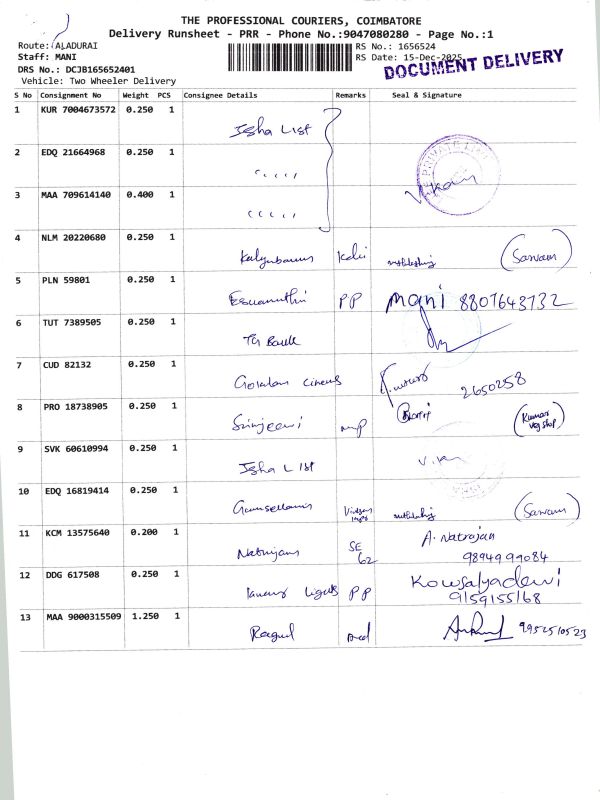 THE PROFESSIONAL COURIERS, COIMBATORE
Delivery Runsheet - PRR - Phone No.:9047080280 - Page No.:1
Route: ALADURAI
Staff: MANI
DRS No.: DCJB165652401
Vehicle: Two Wheeler Delivery
RS No.: 1656524
RS Date: 15-Dec-2025
DOCUMENT DELIVERY
S No Consignment No Weight PCS Consignee Details Remarks Seal & Signature
1 KUR 7004673572 0.250 1 Isha List
2 EDQ 21664968 0.250 1 " " " "
3 MAA 709614140 0.400 1 " " " "
PRIVATE
4 NLM 20220680 0.250 1 (Sarvam)
5 PLN 59801 0.250 1 PP Mani 8807643732
6 TUT 7389505 0.250 1
7 CUD 82132 0.250 1 2650258
8 PRO 18738905 0.250 1 (Kumar Veg shop)
9 SVK 60610994 0.250 1 Isha List
10 EDQ 16819414 0.250 1 (Sarvam)
11 KCM 13575640 0.200 1 SE 62 A. Natrajan
9894999084
12 DDG 617508 0.250 1 PP Kowsalyadevi
9159155168
13 MAA 9000315509 1.250 1 Ragul 9952510523